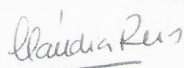 Cláudia Reis